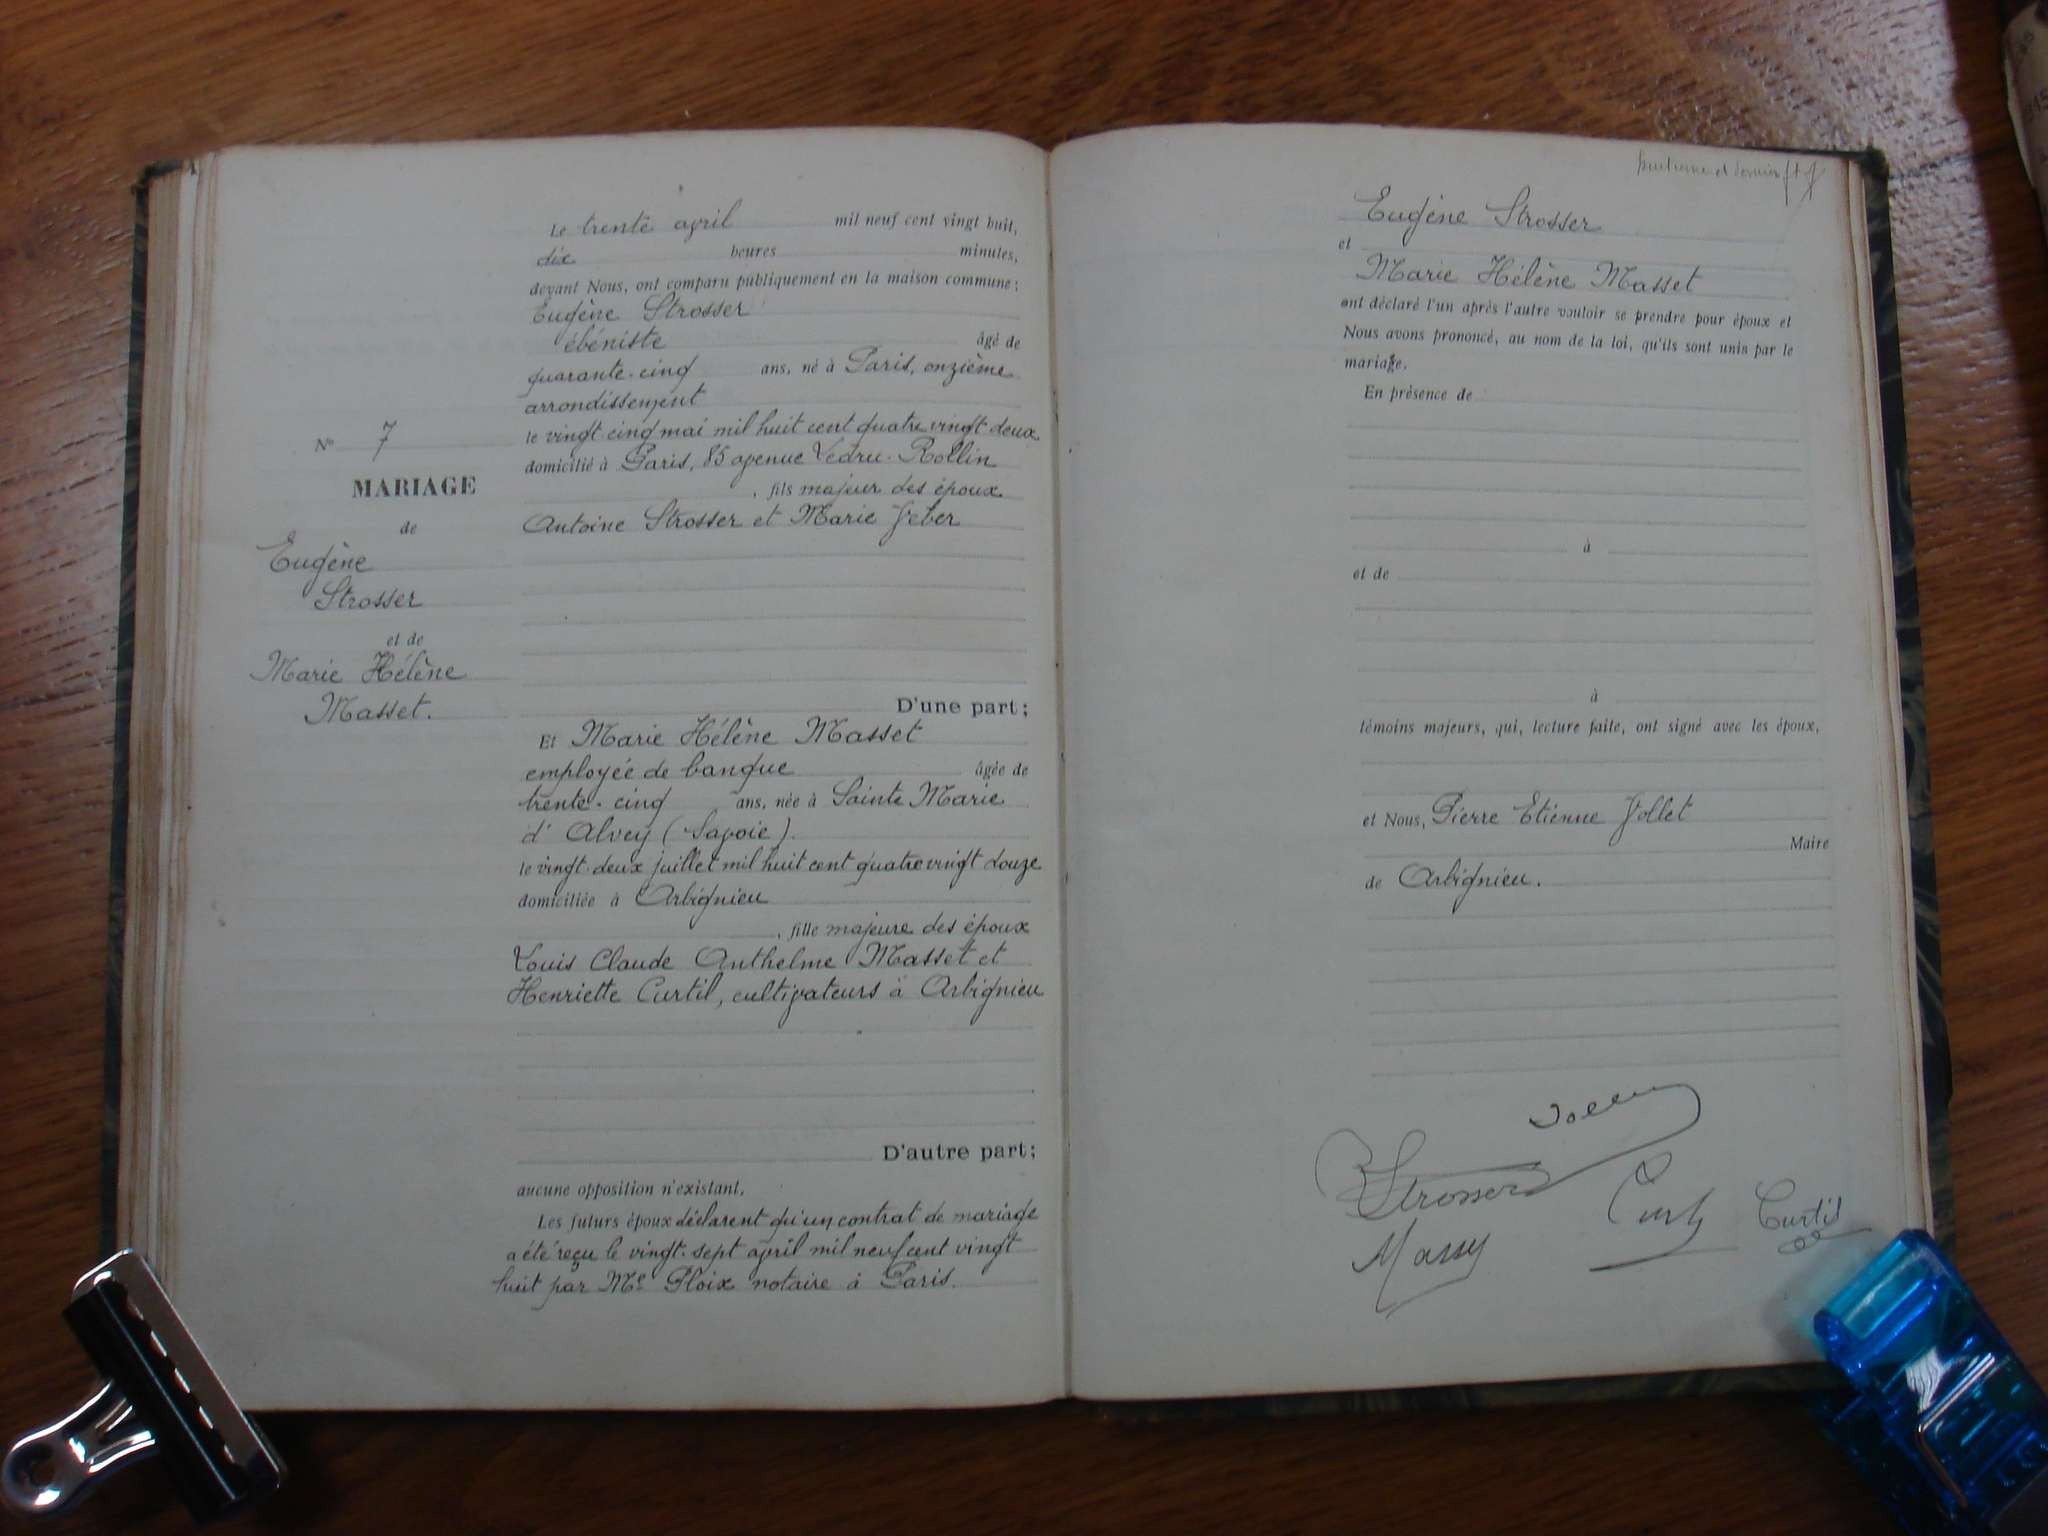 Le trente avril mil neuf cent vingt huit,
dix heures minutes,
devant Nous, ont comparu publiquement en la maison commune :
Eugène Strosser
ébéniste âgé de
quarante-cinq ans, né à Paris, onzième
arrondissement
le vingt-cinq mai mil huit cent quatre vingt deux
domicilié à Paris, 85 avenue Ledru-Rollin
, fils majeur des époux
Antoine Strosser et Marie Feber
N° 7
MARIAGE
de
Eugène
Strosser
et de
Marie Hélène
Masset.
D'une part ;
Et Marie Hélène Masset
employée de banque âgée de
trente-cinq ans, née à Sainte Marie
d'Alvey (Savoie).
le vingt-deux juillet mil huit cent quatre vingt douze
domiciliée à Arbignieu
, fille majeure des époux
Louis Claude Anthelme Masset et
Henriette Curtil, cultivateurs à Arbignieu
D'autre part ;
aucune opposition n'existant.
Les futurs époux déclarent qu'un contrat de mariage
a été reçu le vingt-sept avril mil neuf cent vingt
huit par Me Ploix notaire à Paris.
et dernier
Eugène Strosser
et
Marie Hélène Masset
ont déclaré l'un après l'autre vouloir se prendre pour époux et
Nous avons prononcé, au nom de la loi, qu'ils sont unis par le
mariage.
En présence de
à
et de
à
témoins majeurs, qui, lecture faite, ont signé avec les époux,
et Nous, Pierre Etienne Jollet
Maire
de Arbignieu.
Strosser
Curtil